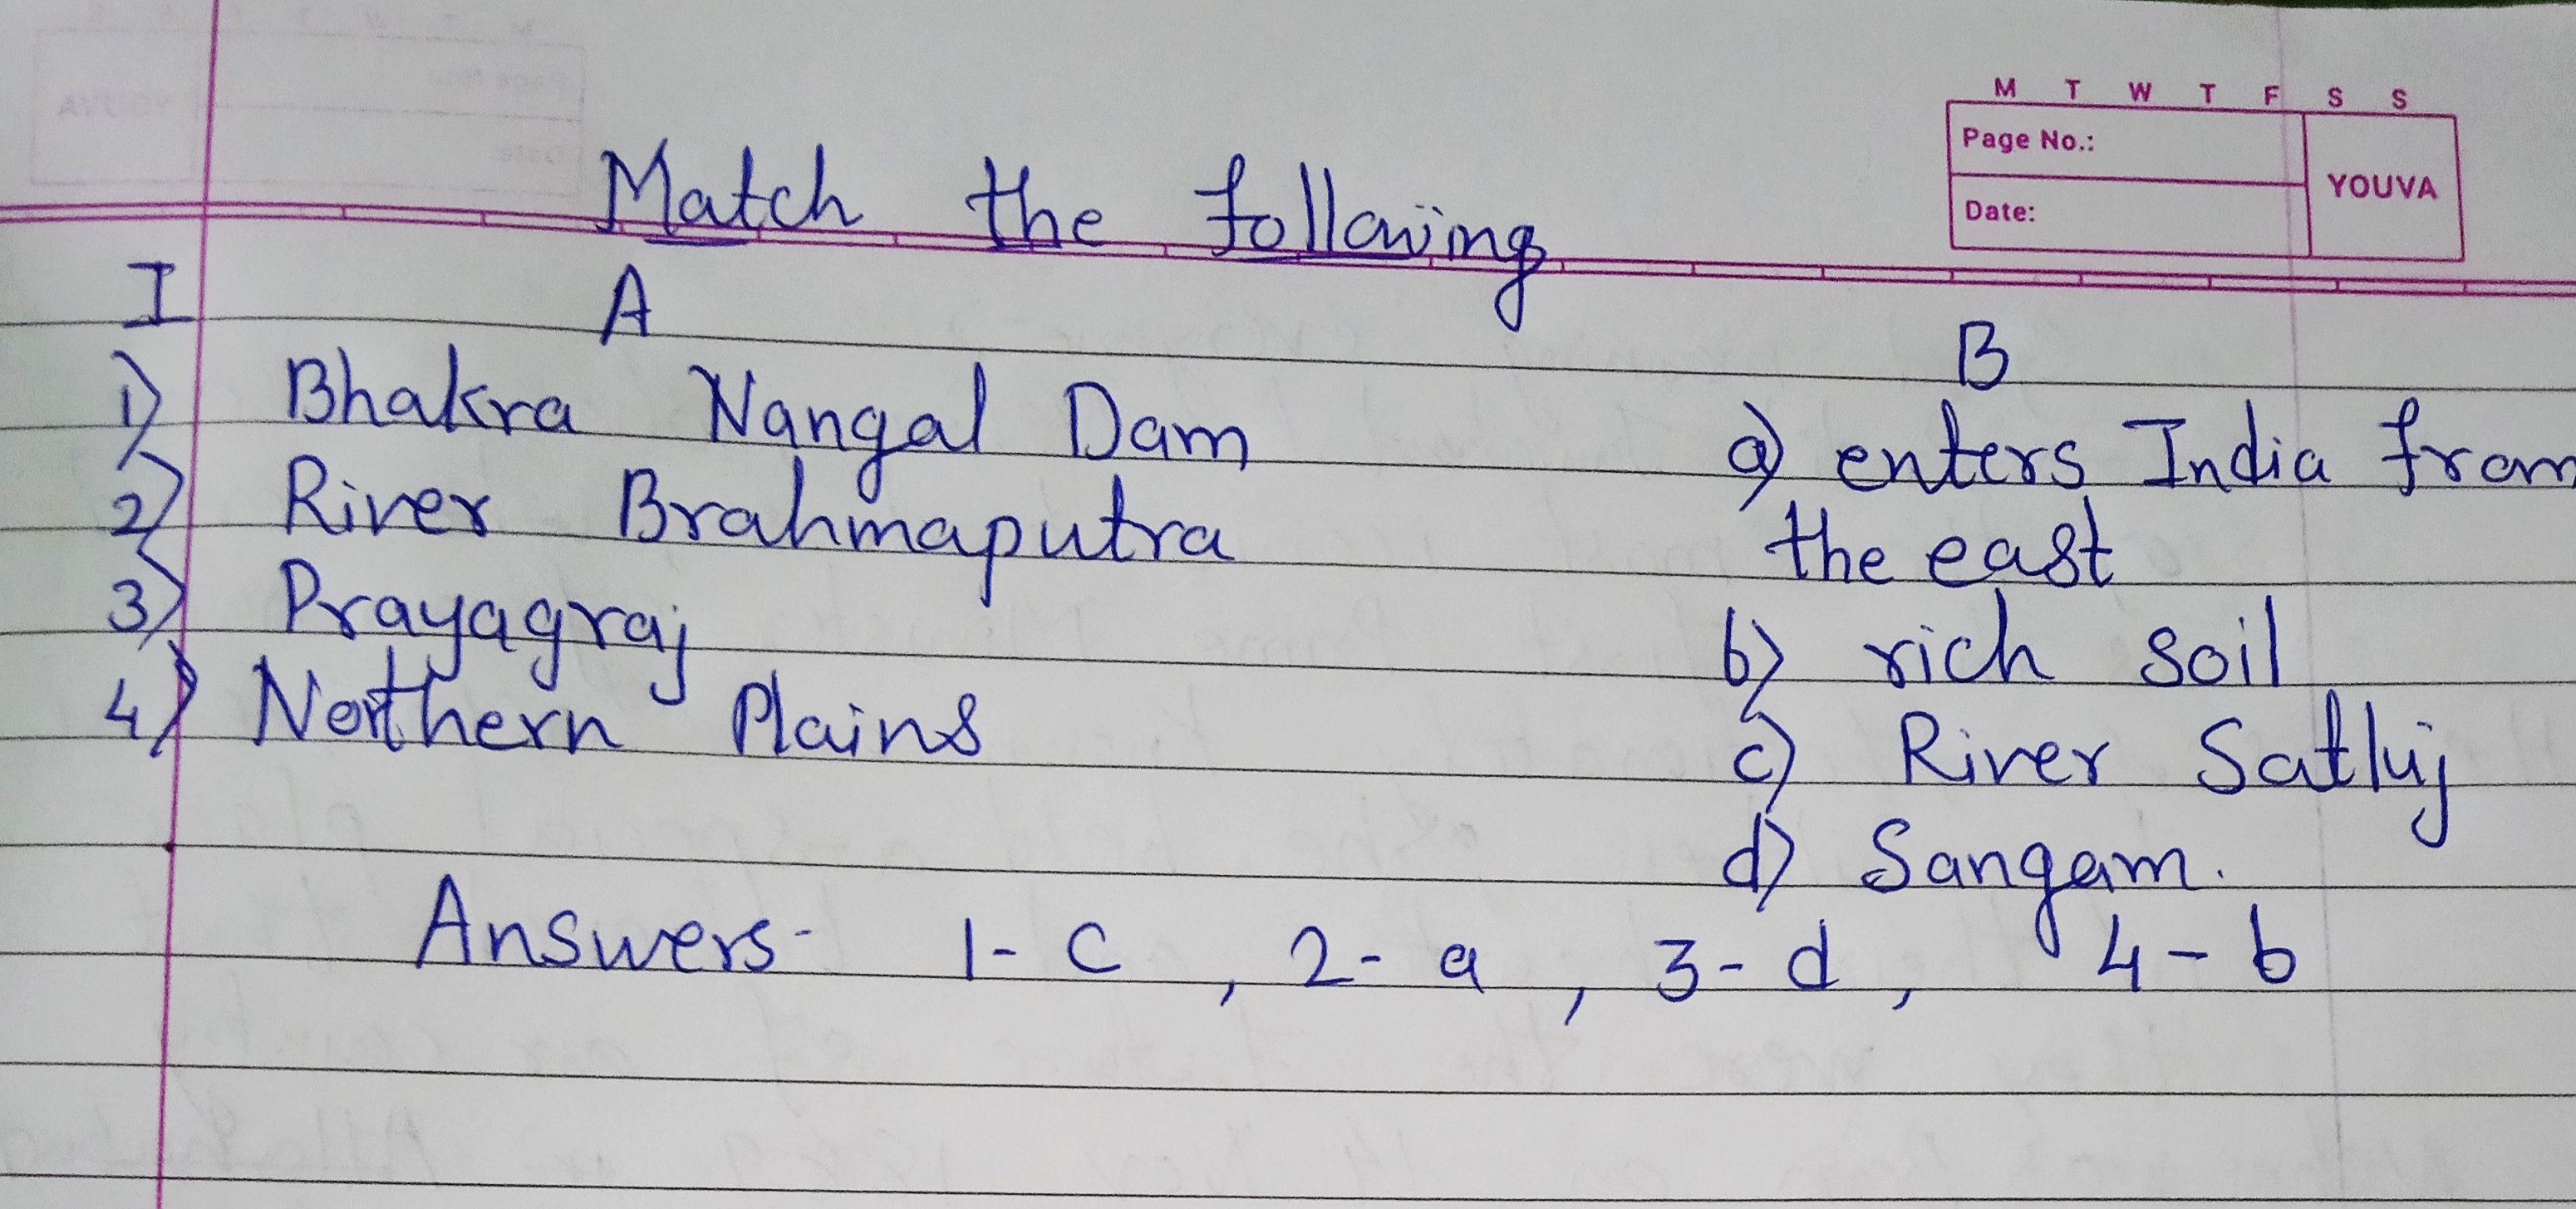 M T W T F S S
Page No.:
YOUVA
Date:
Match the following
I A
B
1) Bhakra Nangal Dam
a) enters India from
2) River Brahmaputra
the east
3) Prayagraj
b) rich soil
4) Northern Plains
c) River Satluj
d) Sangam.
Answers- 1- c , 2- a , 3- d , 4- b